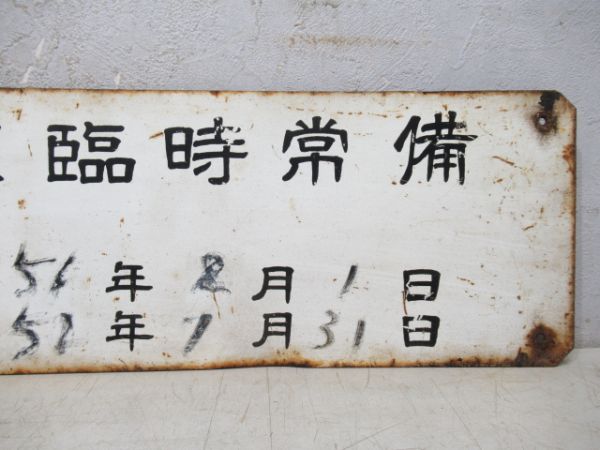 臨時常備
56年8月1日
57年7月31日